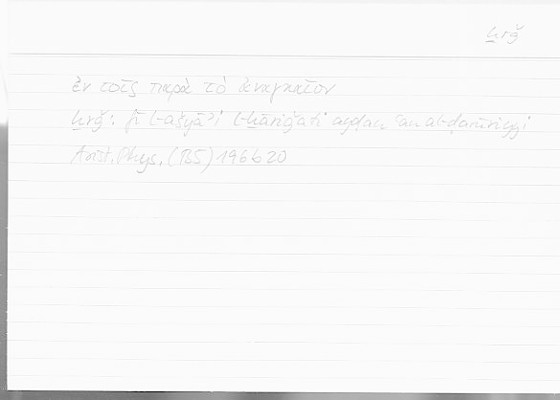 ḫrǧ
ἐν τοῖς παρὰ τὸ ἀναγκαῖον
ḫrǧ: fī l-ašyāʾi l-ḫāriǧati ayḍan ʿan al-ḍarūrīyi
Arist. Phys. (185) 196b20